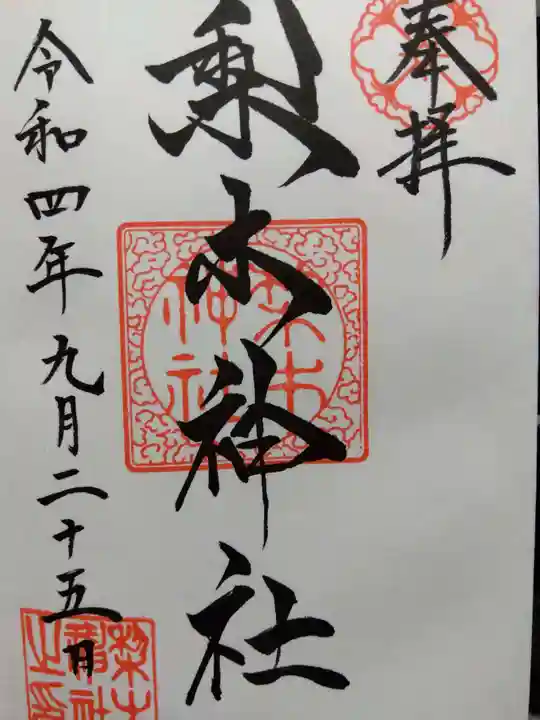 奉拝
梨木神社
令和四年九月二十五日
梨木
神社